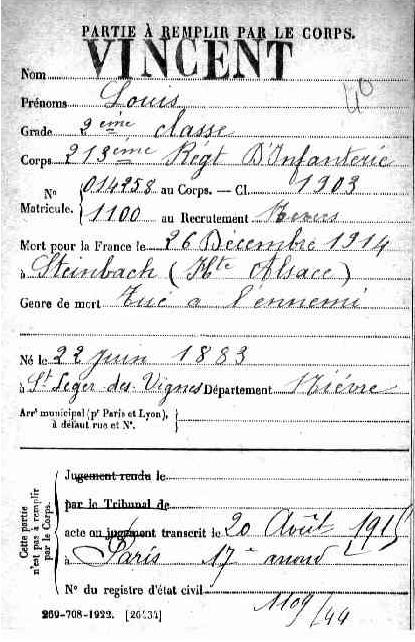 PARTIE À REMPLIR PAR LE CORPS.
Nom VINCENT
Prénoms Louis
40
Grade 2ème classe
Corps 213ème Régt D'Infanterie
No 014258 au Corps. — Cl. 1903
Matricule. 1100 au Recrutement Nevers
Mort pour la France le 26 Décembre 1914
à Steinbach (Hte Alsace)
Genre de mort Tué a l'ennemi
Né le 22 Juin 1883
à St Leger des Vignes Département Nièvre
Arrt municipal (pr Paris et Lyon),
à défaut rue et No.
Cette partie
n'est pas à remplir
par le Corps.
Jugement rendu le
par le Tribunal de
acte ou jugement transcrit le 20 Août 1915
à Paris 17e arrond
No du registre d'état civil
1109/44
269-708-1922. [26434]